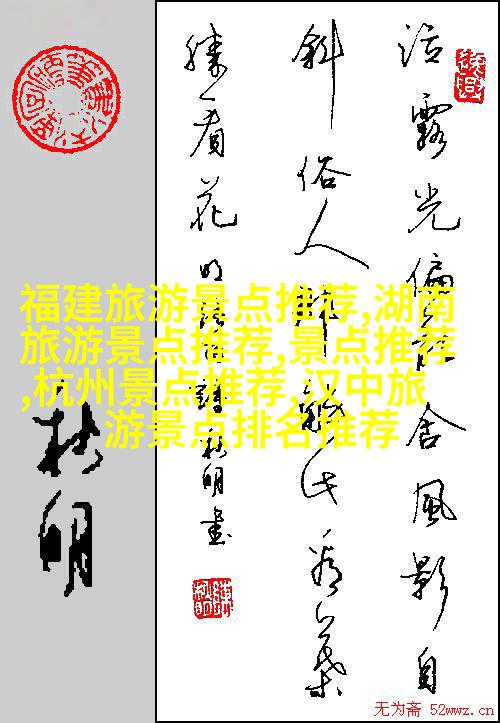 福建旅游景点推荐,湖南
旅游景点推荐,景点推荐
,杭州景点推荐,汉中旅
游景点排名推荐
沾露光偏含風影自
斜俗人那此看葉
勝看花
杜明書
杜明
无为斋 52wwz.cn